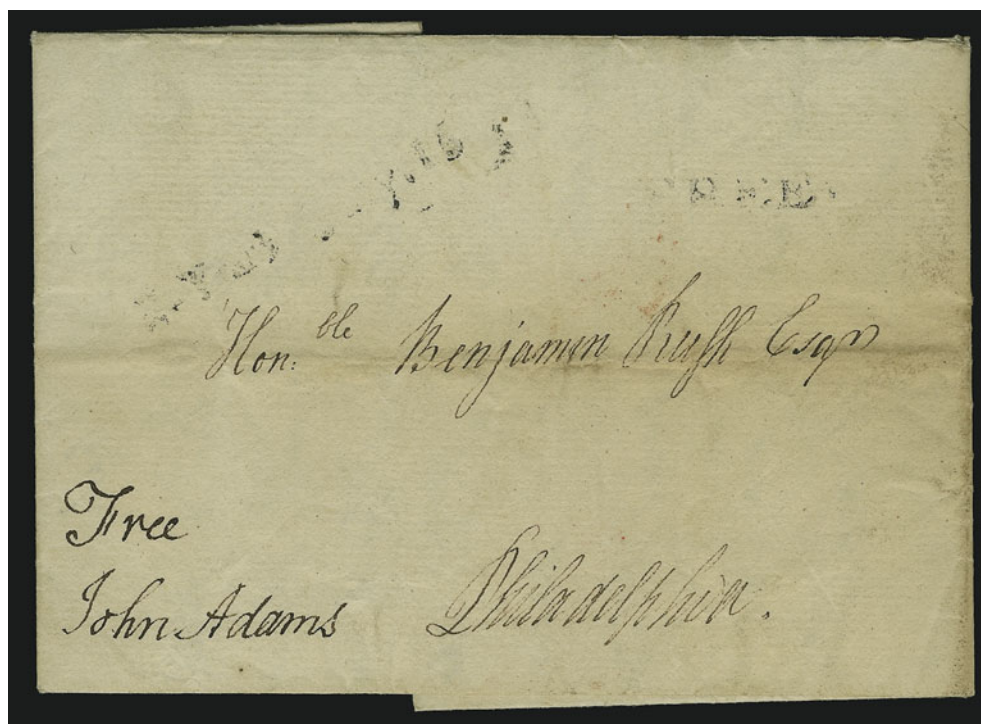 FREE
Hon:ble Benjamin Rush Esqr
Free
John Adams
Philadelphia.